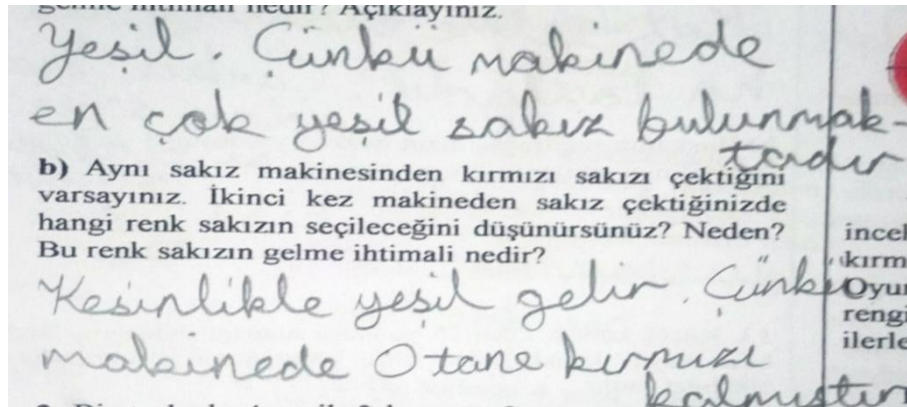 ihtimali nedir? Açıklayınız.
Yeşil. Çünkü makinede
en çok yeşil sakız bulunmak-
tadır
b) Aynı sakız makinesinden kırmızı sakızı çektiğini
varsayınız. İkinci kez makineden sakız çektiğinizde
hangi renk sakızın seçileceğini düşünürsünüz? Neden?
Bu renk sakızın gelme ihtimali nedir?
Kesinlikle yeşil gelir. Çünkü
makinede 0 tane kırmızı
kalmıştır
incel
kırm
Oyun
rengi
ilerle